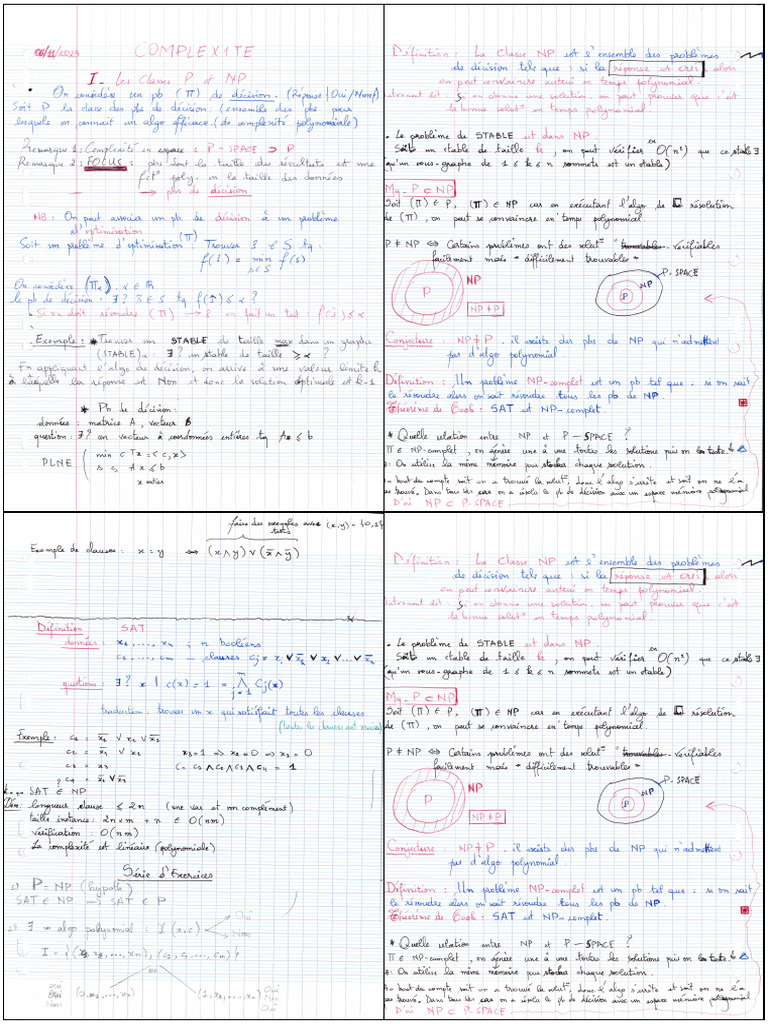 06/11/2023
COMPLEXITE
I - Les Classes P et NP
On considère un pb (Π) de décision. (Réponse: Oui/Non)
Soit P la classe des pbs de décision: (ensemble des pbs pour
lesquels on connait un algo efficace. (de complexité polynomiale)
Remarque 1: Complexité en espace: P-SPACE ⊃ P
Remarque 2: FOCUS: pbs dont la taille des résultats est une
fct° poly- en la taille des données
→ pbs de décision
NB: On peut associer un pb de décision à un problème
d'optimisation
Soit un problème d'optimisation (Π): Trouver ŝ ∈ S tq:
f(ŝ) = min f(s)
s∈S
On considère (Πα), α ∈ ℝ
le pb de décision: ∃? s̄ ∈ S tq f(s̄) ≤ α?
Si on doit résoudre (Π) → on fait un test: f(s) ≤ α
Exemple: * Trouver un STABLE de taille max dans un graphe
(STABLE)α: ∃? un stable de taille ≥ α?
En appliquant l'algo de décision, on arrive à une valeur limite k
à laquelle la réponse est Non et donc la solution optimale est k-1
* Pb de décision:
données: matrice A, vecteur B
question: ∃? un vecteur à coordonnées entières tq Ax ≤ b
PLNE { min cTx = <c,x>
s.c, Ax ≤ b
x entier
Définition: La Classe NP est l'ensemble des problèmes
de décision tels que: si la réponse est oui, alors
on peut convaincre autrui en temps polynomial.
Autrement dit: Si on donne une solution, on peut prouver que c'est
la bonne solut° en temps polynomial.
• Le problème de STABLE est dans NP.
Soit un stable de taille k, on peut vérifier en O(n²) que ce stable ∃
qu'un sous-graphe de 1 ≤ k ≤ n sommets est un stable)
Mq- P ⊂ NP
Soit (Π) ∈ P, (Π) ∈ NP car en exécutant l'algo de résolution
de (Π), on peut se convaincre en temps polynomial.
P ≠ NP ⇔ Certains problèmes ont des solut° "trouvables vérifiables
facilement mais "difficilement trouvables"
P
NP
NP ≠ P
P
NP
P-SPACE
Conjecture: NP ≠ P. il existe des pbs de NP qui n'admettent
pas d'algo polynomial.
Définition: Un problème NP-complet est un pb tel que: si on sait
le résoudre alors on sait résoudre tous les pb de NP.
Théorème de Cook: SAT est NP-complet.
* Quelle relation entre NP et P-SPACE?
Π ∈ NP-complet, on génère une à une toutes les solutions puis on les teste
: On utilise la même mémoire pour stocker chaque solution.
bout du compte soit on a trouvé la solut°, donc l'algo s'arrête et soit on ne l'a
pas trouvé. Dans tous les cas on a résolu le pb de décision avec un espace mémoire polynomial
D'où NP ⊂ P-SPACE.
faire des exemples avec (x,y) = {0,1}²
tests
Exemple de clauses: x = y ⇔ (x ∧ y) ∨ (x̄ ∧ ȳ)
Définition SAT
données: x₁, ..., xₙ; n booléens
c₁, ..., cₘ - clauses cj = xᵢ ∨ x̄ₖ ∨ xₗ ∨ ... ∨ xₙ
question: ∃? x | c(x) = 1 = ∧ Cj(x)
m
j=1
traduction: trouver un x qui satisfait toutes les clauses
(toutes les clauses sont vraies)
Exemple: c₁ = x̄₁ ∨ x₂ ∨ x̄₃
c₂ = x̄₁ ∨ x₂ x₃=1 ⇒ x₂=0 ⇒ x₁=0
c₃ = x₃ C = c₁ ∧ c₂ ∧ c₃ ∧ c₄ = 1
c₄ = x̄₂ ∨ x̄₃
SAT ∈ NP
Dém: longueur clause ≤ 2n (une var et son complément)
taille instance: 2n×m + n ∈ O(nm)
vérification: O(nm)
La complexité est linéaire (polynomiale)
Série d'Exercices
1) P = NP (hypoth)
SAT ∈ NP → SAT ∈ P
2) ∃ algo polynomial: A(x,c)
Oui
Non
I = {(x₁, x₂, ..., xₙ), (c₁, c₂, ..., cₘ)}
(0, x₂, ..., xₙ) (1, x₂, ..., xₙ)
Oui
Non
Oui
Non
Oui
Définition: La Classe NP est l'ensemble des problèmes
de décision tels que: si la réponse est oui, alors
on peut convaincre autrui en temps polynomial.
Autrement dit: Si on donne une solution, on peut prouver que c'est
la bonne solut° en temps polynomial.
• Le problème de STABLE est dans NP.
Soit un stable de taille k, on peut vérifier en O(n²) que ce stable ∃
qu'un sous-graphe de 1 ≤ k ≤ n sommets est un stable)
Mq- P ⊂ NP
Soit (Π) ∈ P, (Π) ∈ NP car en exécutant l'algo de résolution
de (Π), on peut se convaincre en temps polynomial.
P ≠ NP ⇔ Certains problèmes ont des solut° "trouvables vérifiables
facilement mais "difficilement trouvables"
P
NP
NP ≠ P
P
NP
P-SPACE
Conjecture: NP ≠ P. il existe des pbs de NP qui n'admettent
pas d'algo polynomial.
Définition: Un problème NP-complet est un pb tel que: si on sait
le résoudre alors on sait résoudre tous les pb de NP.
Théorème de Cook: SAT est NP-complet.
* Quelle relation entre NP et P-SPACE?
Π ∈ NP-complet, on génère une à une toutes les solutions puis on les teste
: On utilise la même mémoire pour stocker chaque solution.
bout du compte soit on a trouvé la solut°, donc l'algo s'arrête et soit on ne l'a
pas trouvé. Dans tous les cas on a résolu le pb de décision avec un espace mémoire polynomial
D'où NP ⊂ P-SPACE.